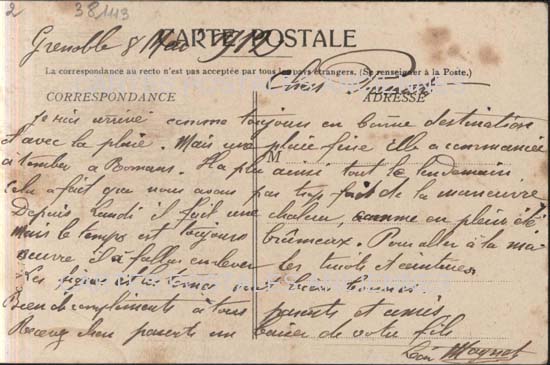 2 38113
Grenoble 8 Mai 1912
CARTE POSTALE
La correspondance au recto n'est pas acceptée par tous les pays étrangers. (Se renseigner à la Poste.)
Chers Parents
CORRESPONDANCE ADRESSE
Je suis arrivé comme toujours en bonne destination
et avec la pluie. Mais une pluie fine elle a commencée
M
a tomber a Romans. Il a plu aussi tout le lendemain
cela a fait que nous avons pas trop fait de la manœuvre
Depuis Lundi il fait une chaleur, comme en plein été
Mais le temps est toujours brumeaux. Pour aller à la ma
œuvre il a fallu enlever les tricots et ceintures
Les
Bien de compliments à tous parents et amis
Recevez chers parents un baiser de votre fils
Léon